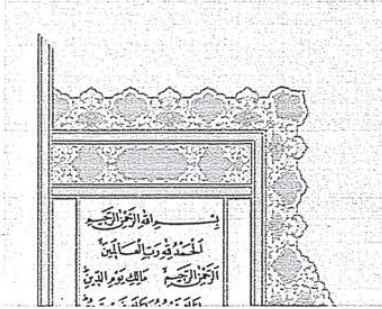 بِسْمِ اللهِ الرَّحْمٰنِ الرَّحِيْمِ
اَلْحَمْدُ لِلّٰهِ رَبِّ الْعَالَمِيْنَ
اَلرَّحْمٰنِ الرَّحِيْمِ مَالِكِ يَوْمِ الدِّيْنِ